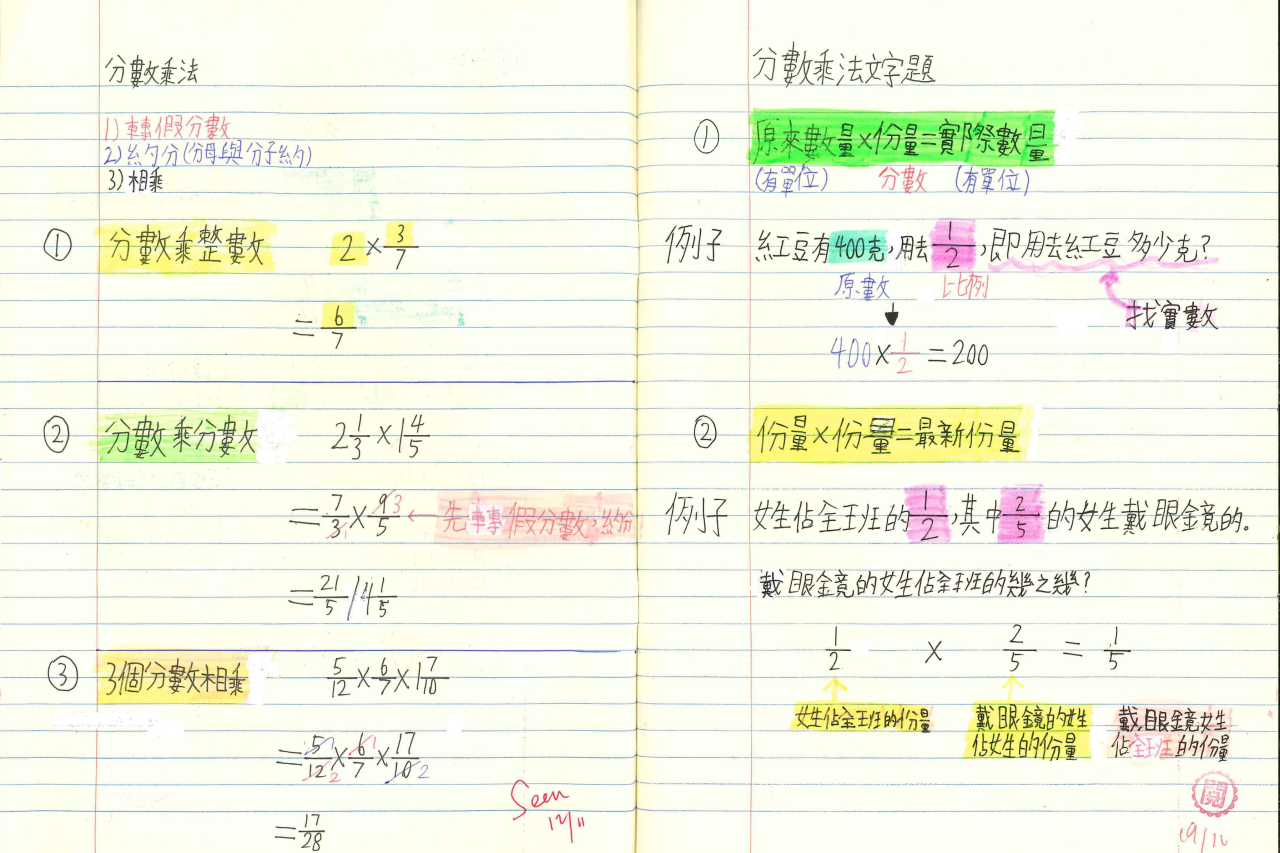 分數乘法
1) 轉假分數
2) 約分(分母與分子約)
3) 相乘
① 分數乘整數 2 × 3/7
= 6/7
② 分數乘分數 2 1/3 × 1 4/5
= 7/3 1 × 9/5 3 ← 先轉假分數,約份
= 21/5 / 4 1/5
③ 3個分數相乘 5/12 × 6/7 × 1 7/10
= 5/12 1 2 × 6/7 1 × 17/10 2
= 17/28
Seen
12/11
分數乘法文字題
① 原來數量×份量=實際數量
(有單位) 分數 (有單位)
例子 紅豆有400克,用去 1/2 ,即用去紅豆多少克?
原數 比例
找實數
400 × 1/2 = 200
② 份量×份量=最新份量
例子 女生佔全班的 1/2 ,其中 2/5 的女生戴眼鏡的。
戴眼鏡的女生佔全班的幾之幾?
1/2 × 2/5 = 1/5
女生佔全班的份量
戴眼鏡的女生
佔女生的份量
戴眼鏡女生
佔全班的份量
閱
19/11